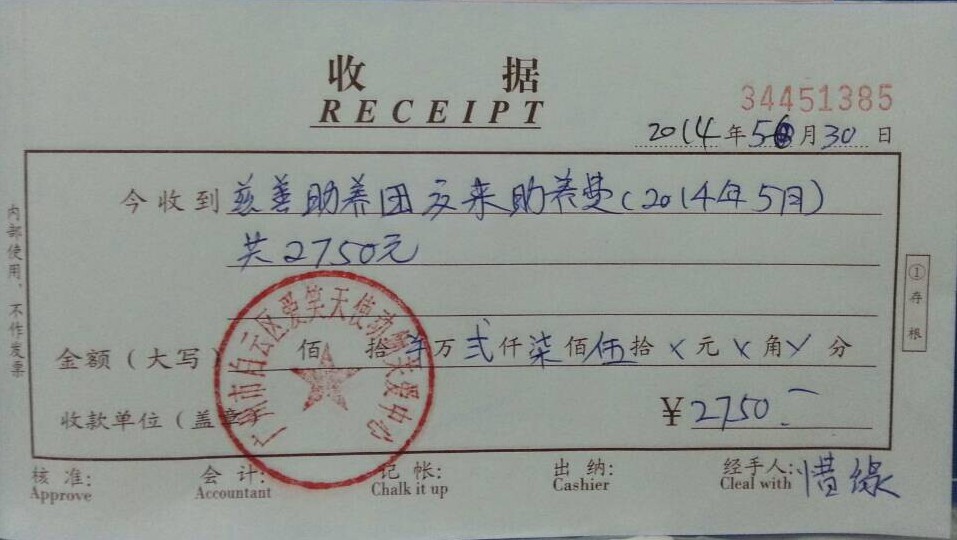 收 据
RECEIPT
34451385
2014 年 5 月 30 日
今收到 慈善助养团 友来助养费(2014年5月)
共2750元
金额(大写) 佰 拾 万 弍 仟 柒 佰 伍 拾 X 元 X 角 X 分
收款单位(盖章) ¥ 2750
广州市白云区爱笑天使动 关爱中心
核 准: 会 计: 记 帐: 出 纳: 经手人: 惜缘
Approve Accountant Chalk it up Cashier Cleal with
内部使用,不作发票
① 存根